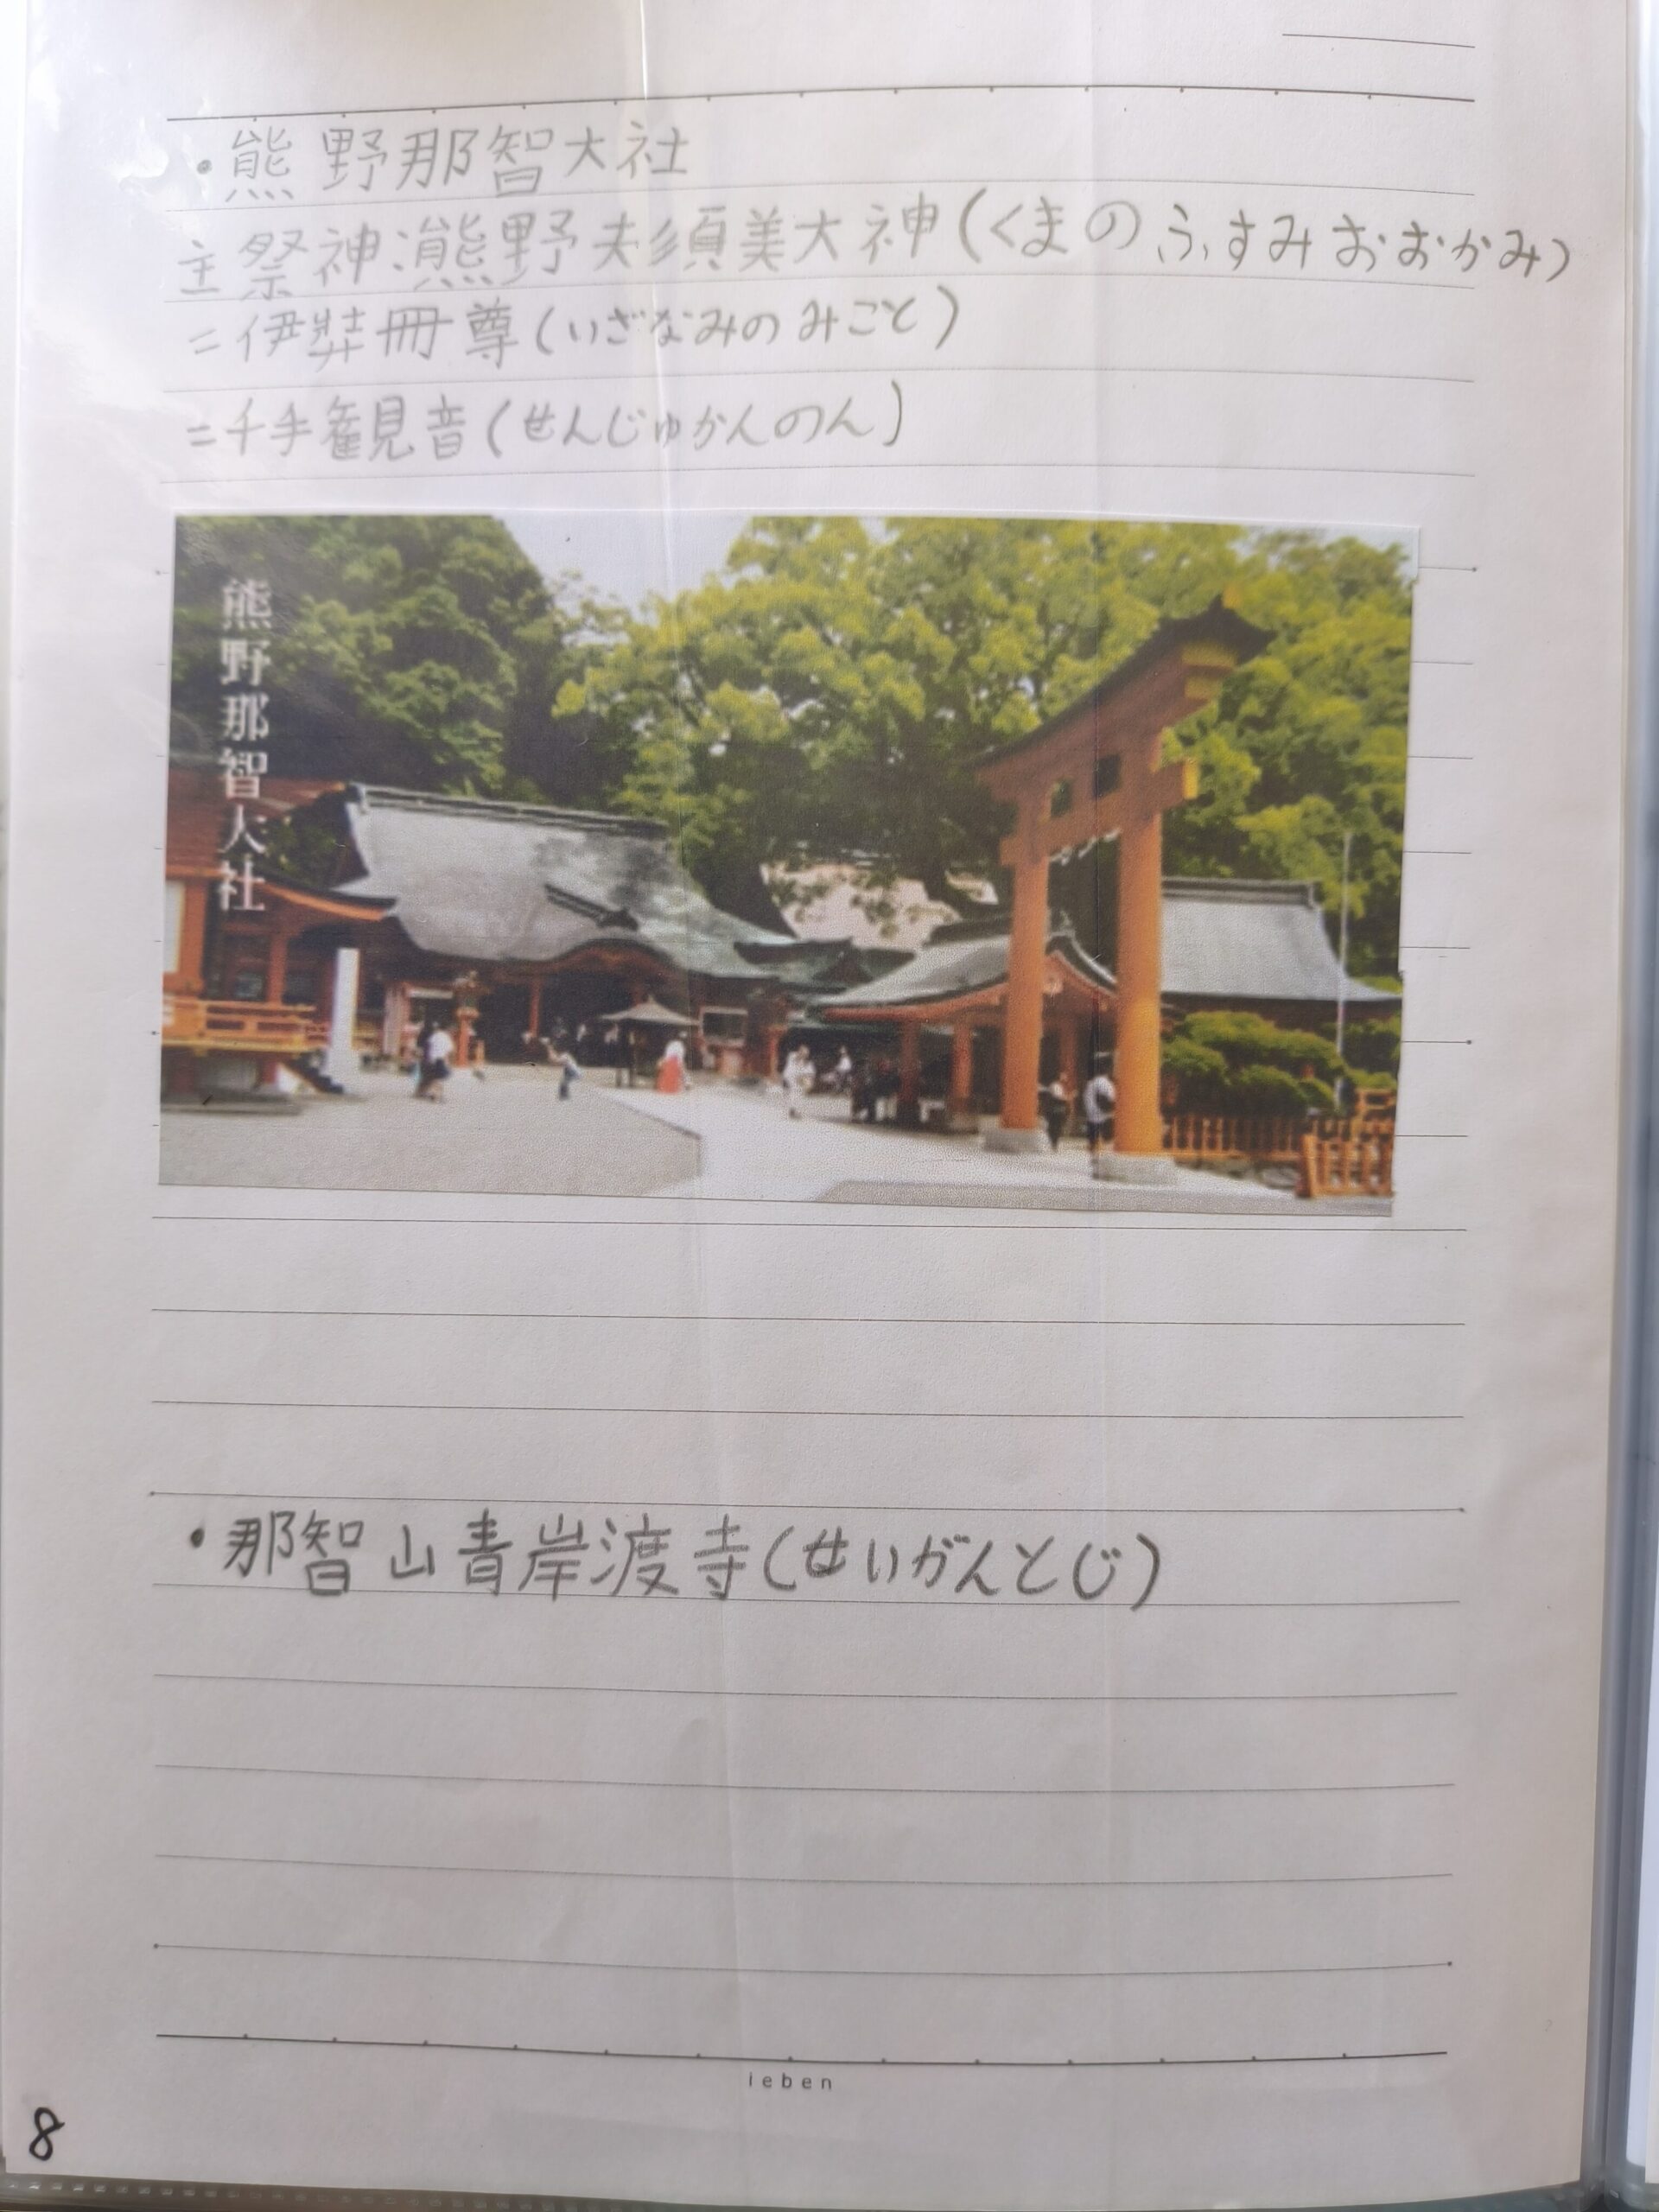 ・熊野那智大社
主祭神:熊野夫須美大神(くまのふすみおおかみ)
=伊弉冊尊(いざなみのみこと)
=千手観音(せんじゅかんのん)
熊野那智大社
・那智山青岸渡寺(せいがんとじ)
ieben
8